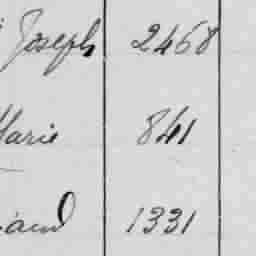 Joseph 2468
Marie 841
1331